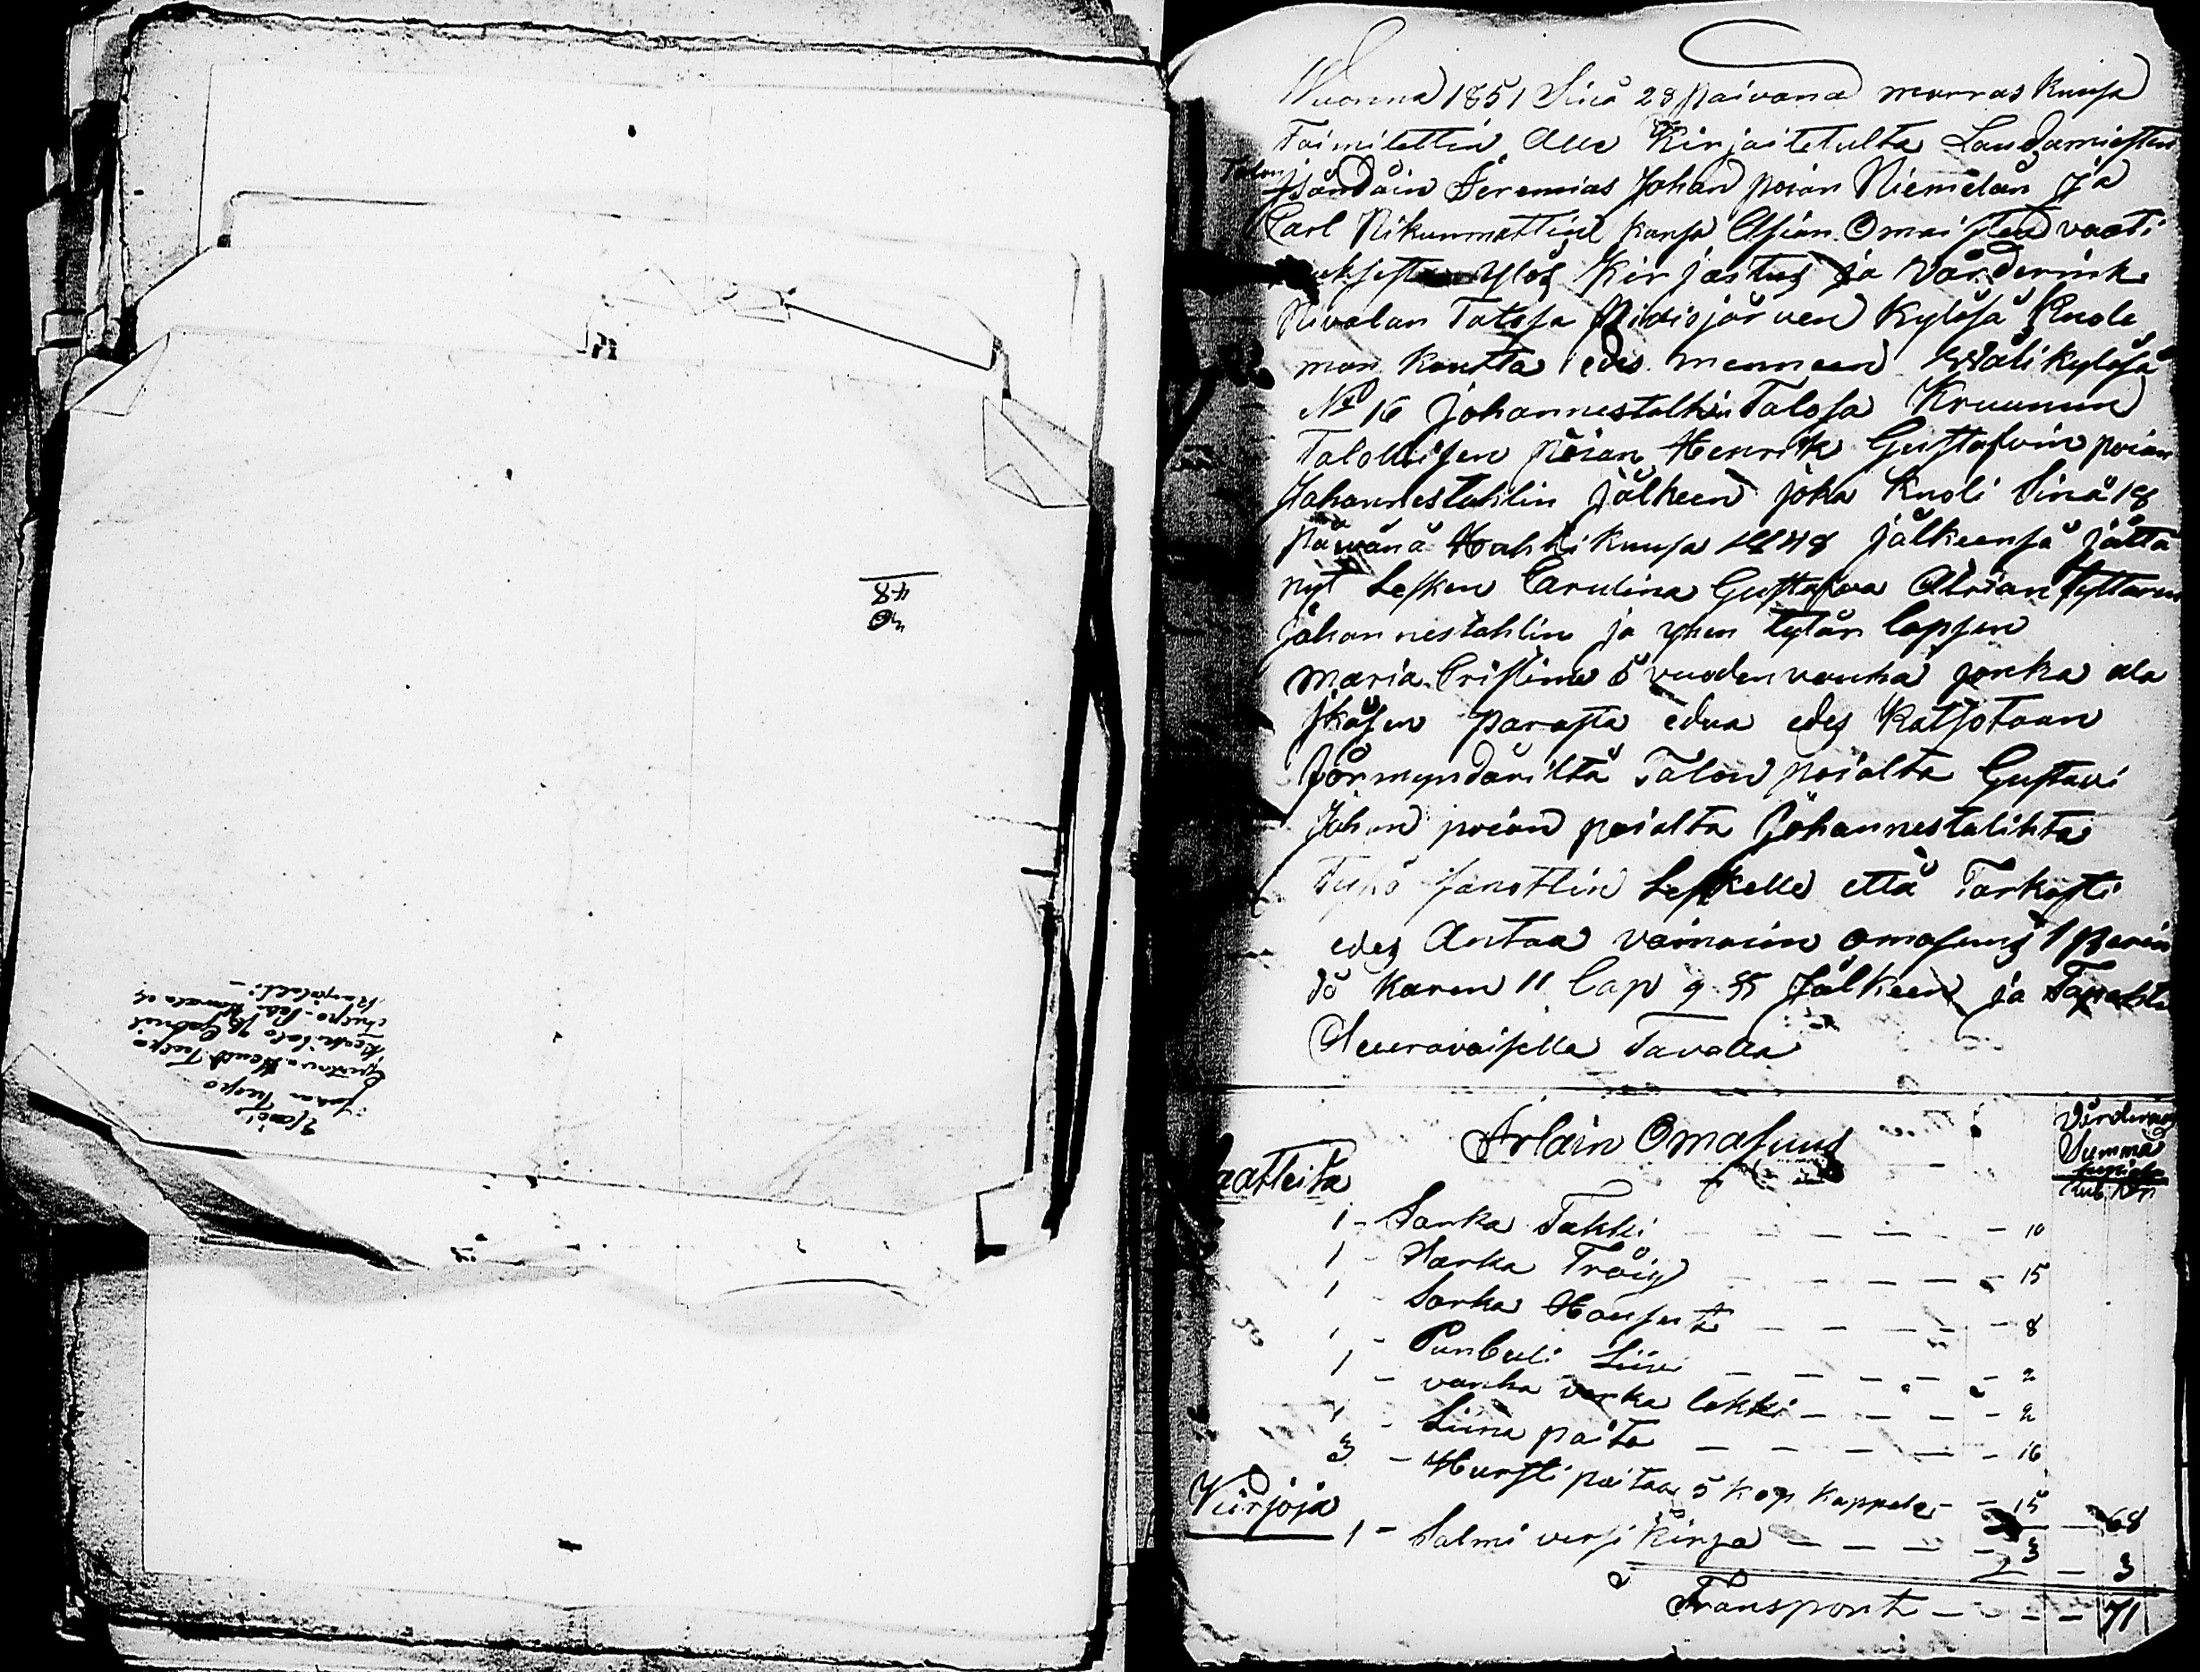 36
48
Johan Tuppo
Wuonna 1851 Sinä 28 päivänä marras kuusa
Toimitettin Alle Kirjoitetulta Laudamiesten
Talon jsändäin Jeremias Johan poian Niemelän ja
Carl Nikunmattilil kansa Asian Omaisten vaati
ylös Kirjoitus ja Värderink
Nivalan Talosa Pidisjärven Kyläsä Kuole
man kautta edes menneen Välikyläsä
No 16 Johannestalhin Talosa Kruunun
Talollisen Poian Henrik Gustafvin poian
Johannestahlin jälkeen joka Kuoli Sinä 18
päivänä Huhtikuusa 1848 jälkeensä jättä
nyt Lesken Carulina Gustafva Adrian tyttären
Johannestahlin ja yhen tytär lapsen
Maria Cristina 5 vuoden vanha jonka ala
jkäsen parasta edua edes Katsotaan
Förmyndäriltä Talon poialta Gustavi
Johan poian poialta Johannestalihta
Tykö sanottin Leskelle että Tarkasti
edes Antaa vainaian omasuus 1 perin
dö Karen 11 Cap 9 §§ Jälkeen ja Tapahtu
Seuravaisella Tavalla
Jrlain Omasuus
Värderings
Summa
hopiasa
Rub Kop
Vaatteita
1 - Sarka Takki - - - - - 10
1 - Sarka Tröiy - - - - - 15
1 - Sarka Housut - - - - - 8
1 - Punbuli Liivi - - - - - 2
1 - vanha verka lakki - - - - 2
1 - Liina paita - - - - - 16
3 - Hursti paitaa 5 kop kappale - - 15 - 68
Kirjoja
1 - Salmi versi kirja - - - - 3 - 3
Transport - - - - 71